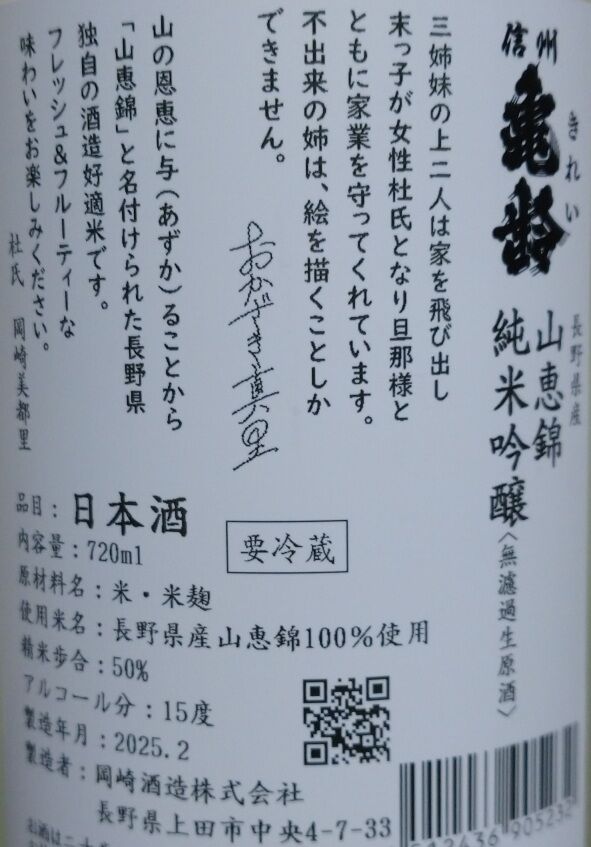 信州
亀齢
きれい
長野県産
山恵錦
純米吟醸〈無濾過生原酒〉
三姉妹の上二人は家を飛び出し
末っ子が女性杜氏となり旦那様と
ともに家業を守ってくれています。
不出来の姉は、絵を描くことしか
できません。
おかざき真里
山の恩恵に与(あずか)ることから
「山恵錦」と名付けられた長野県
独自の酒造好適米です。
フレッシュ&フルーティーな
味わいをお楽しみください。
杜氏 岡崎美都里
要冷蔵
品目：日本酒
内容量：720ml
原材料名：米・米麹
使用米名：長野県産山恵錦100%使用
精米歩合：50%
アルコール分：15度
製造年月：2025.2
製造者：岡崎酒造株式会社
長野県上田市中央4-7-33
お酒は二十
905232